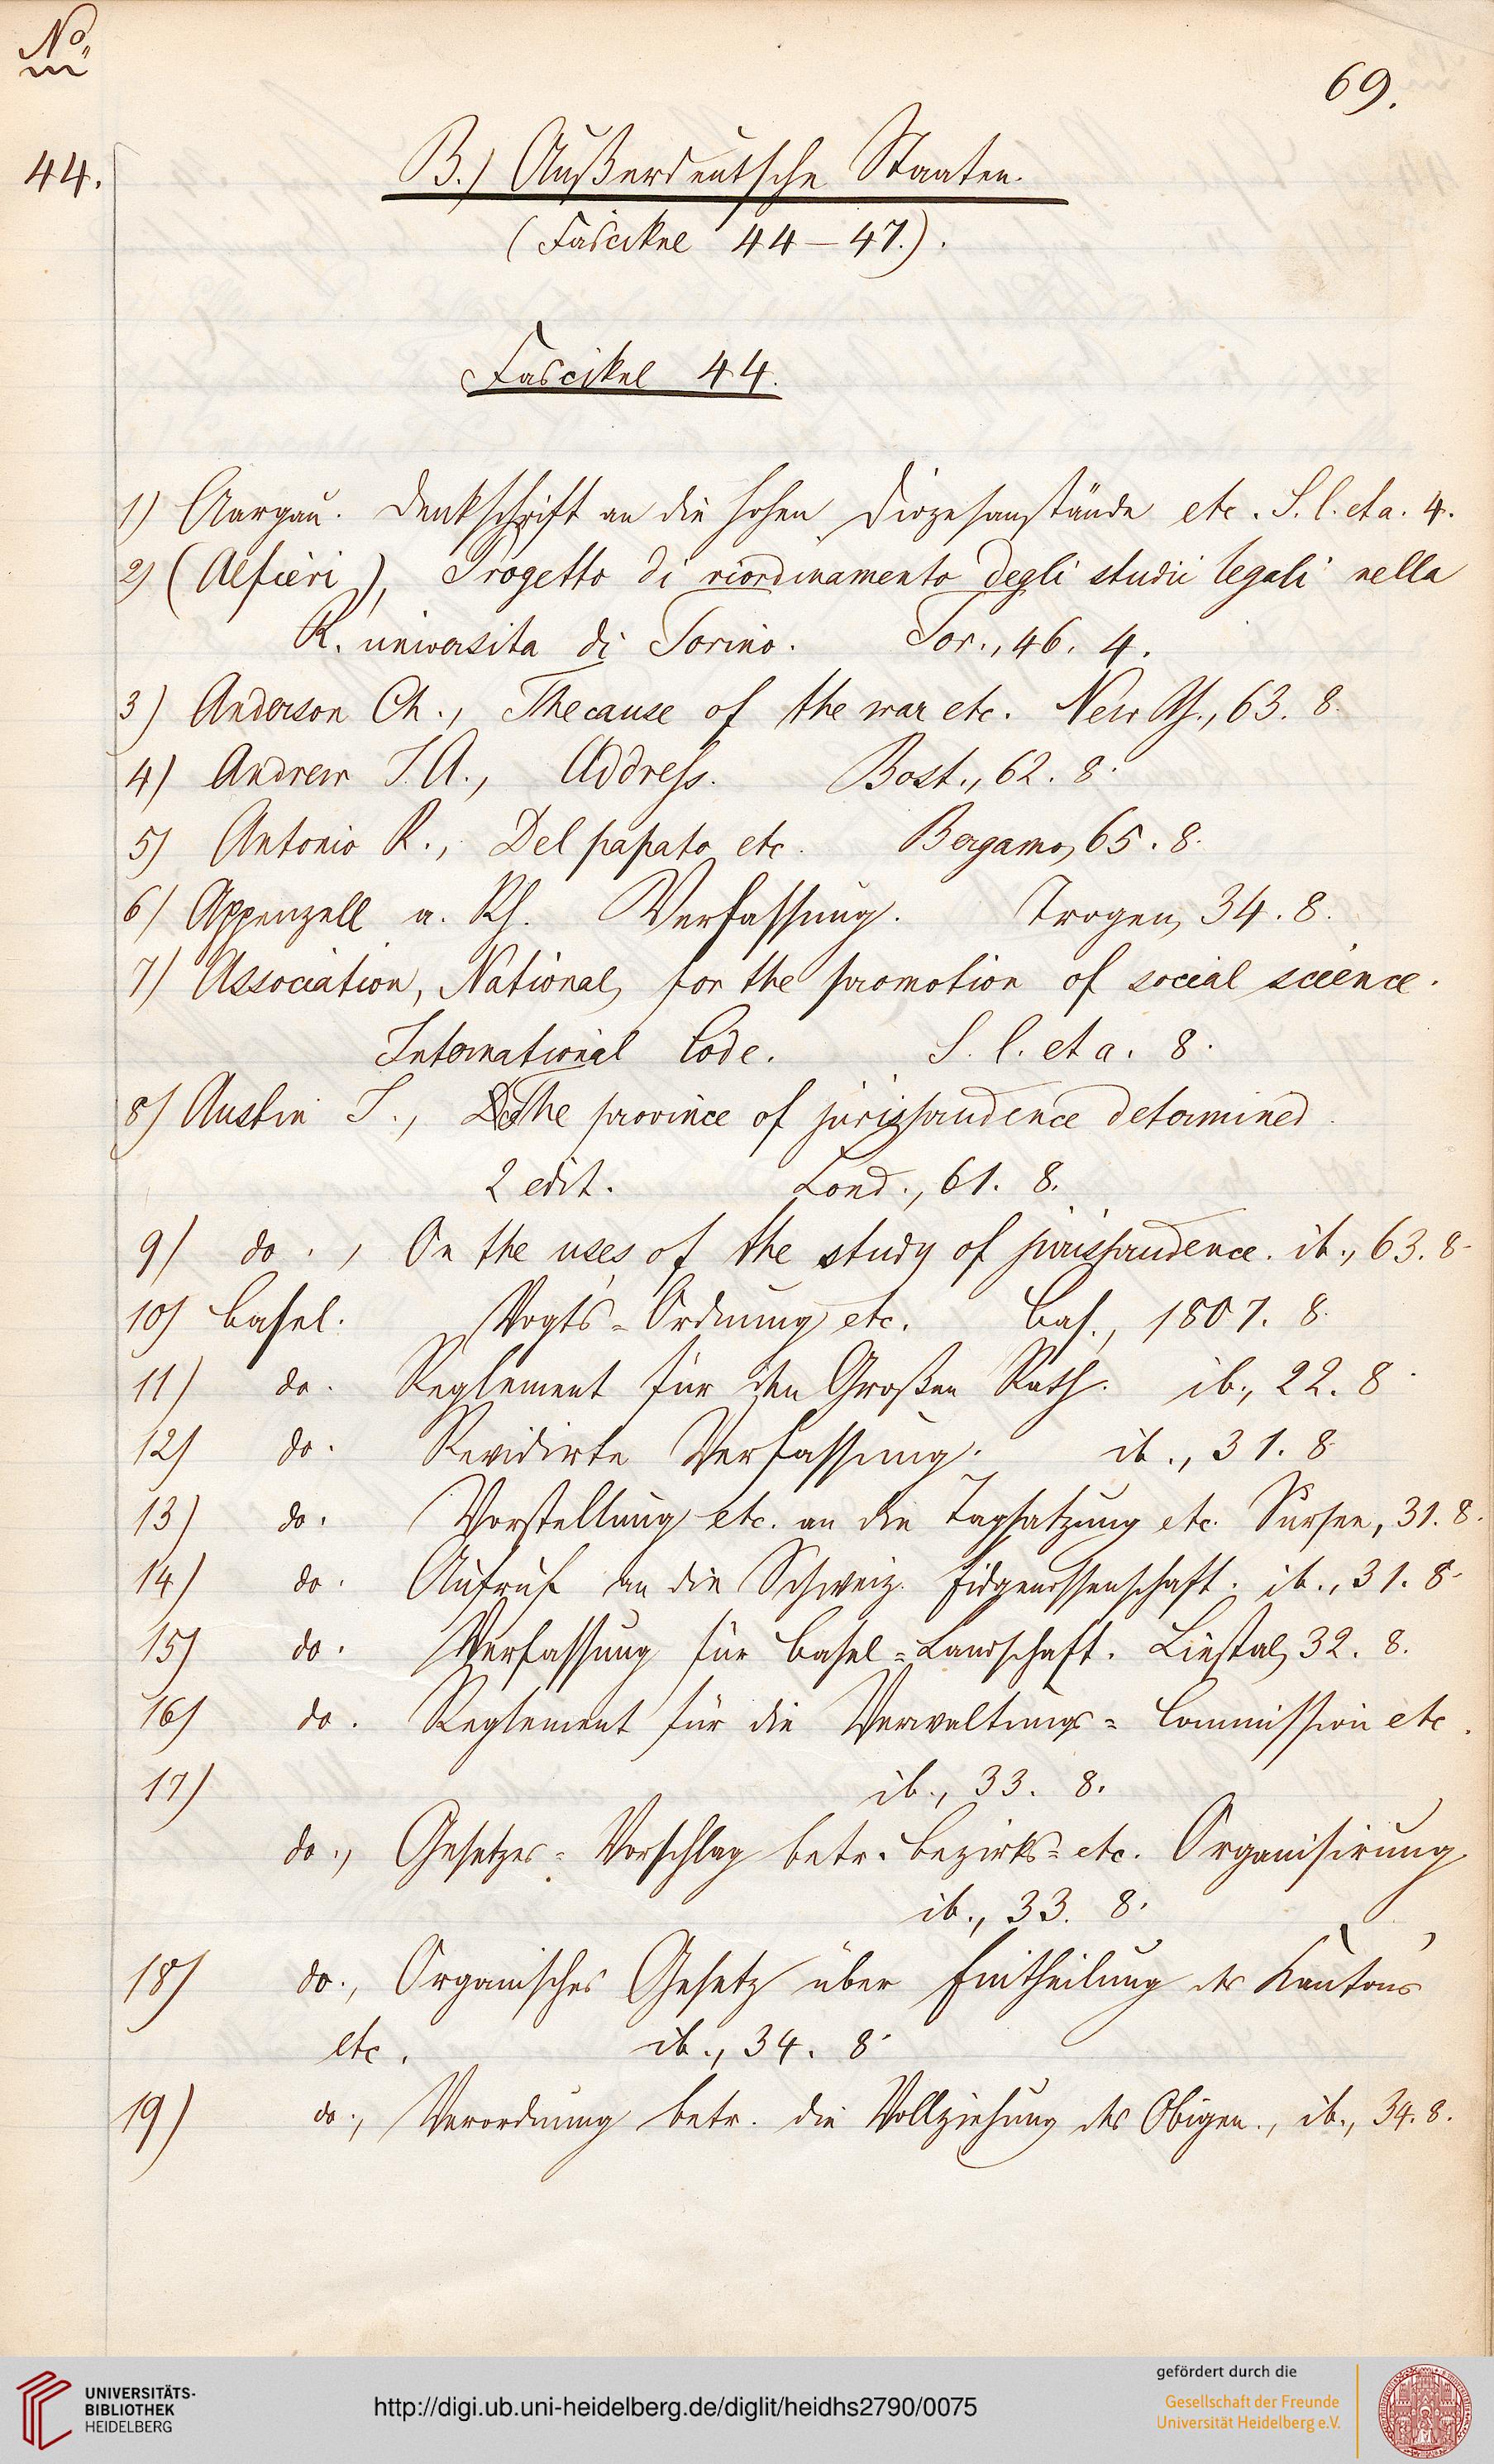 No.
69.
44.
B.) Außerdeutsche Staaten.
(Fascikel 44–47.).
Fascikel 44.
1) Aargau. Denkschrift an die hohen Diözesanstände etc. S. l. et a. 4.
2) (Alfieri), Progetto di riordinamento degli studii legali nella
R. universita di Torino. Tor., 46. 4.
3) Anderson Ch., The cause of the war etc. New Y., 63. 8.
4) Andrew J. A., Address. Bost., 62. 8.
5) Antonio R., Del papato etc. Bergamo, 65. 8.
6) Appenzell a. Rh. Verfassung. Trogen, 34. 8.
7) Association, National, for the promotion of social science.
International Code. S. l. et a. 8.
8) Austin J., The province of jurisprudence determined.
2 edit. Lond., 61. 8.
9) do., On the uses of the study of jurisprudence. ib., 63. 8.
10) Basel. Vogts=Ordnung etc. Bas., 1807. 8.
11) do. Reglement für den Großen Rath. ib., 22. 8.
12) do. Revidirte Verfassung. ib., 31. 8.
13) do. Vorstellung etc. an die Tagsatzung etc. Sursee, 31. 8.
14) do. Aufruf an die Schweiz. Eidgenossenschaft. ib., 31. 8.
15) do. Verfassung für Basel=Landschaft. Liestal, 32. 8.
16) do. Reglement für die Verwaltungs=Commission etc.
17) ib., 33. 8.
do., Gesetzes=Vorschlag betr. Bezirks= etc. Organisirung.
ib., 33. 8.
18) do., Organisches Gesetz über Eintheilung des Kantons
etc. ib., 34. 8.
19) do., Verordnung betr. die Vollziehung des Obigen., ib., 34. 8.
UNIVERSITÄTS-
BIBLIOTHEK
HEIDELBERG
http://digi.ub.uni-heidelberg.de/diglit/heidhs2790/0075
gefördert durch die
Gesellschaft der Freunde
Universität Heidelberg e.V.